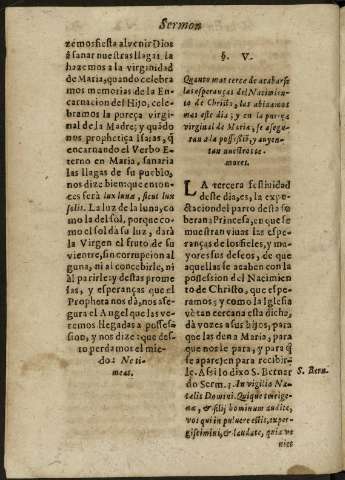 Sermon
zemos fiesta al venir Dios
â sanar nuestras llagas. la
hazemos a la virginidad
de Maria, quando celebra
mos memorias de la En-
carnacion del Hijo, cele-
bramos la pureça virgi-
nal de la Madre; y quãdo
nos prophetiça Isaias, q̃
encarnando el Verbo E-
terno en Maria, sanaria
las llagas de su pueblo,
nos dize bien; que enton-
ces serà lux lunæ, sicut lux
solis. La luz de la luna, co
mo la del sol, porque co-
mo el sol da su luz, darà
la Virgen el fruto de su
vientre, sin corrupcion al
guna, ni al concebirle, ni
àl parirle; y destas prome
sas, y esperanças que el
Propheta nos dà, nos ase-
gura el Angel que las ve-
remos llegadas a posses-
sion, y nos dize: que des-
to perdamos el mie-
do: Ne ti-
meas.
§. V.
Quanto mas cerca de acabarse
las esperanças del Nacimien-
to de Christo, las abivamos
mas este dia; y en la pureça
virginal de Maria, se asegu-
ran a la possessiõ, y auyen-
tan nuestros te-
mores.
LA tercera festividad
deste dia, es, la expe-
ctacion del parto desta so
berana Princesa, en que se
muestran vivas las espe-
ranças de los fieles, y ma-
yores sus deseos, de que
aquellas se acaben con la
possession del Nacimien
to de Christo, que espe-
ramos; y como la Iglesia
vè tan cercana esta dicha,
dà vozes a sus hijos, para
que las den a Maria, para
que nos le para, y para q̃
se aparejen para recibir-
le. Assi lo dixo S. Bernar
do Serm. 3. In vigilia Na-
talis Domini. Quique indige-
næ, & filij hominum audite,
vos qui in pulvere estis, exper-
giscimini, & laudate, quia ve
nite
S. Bern.